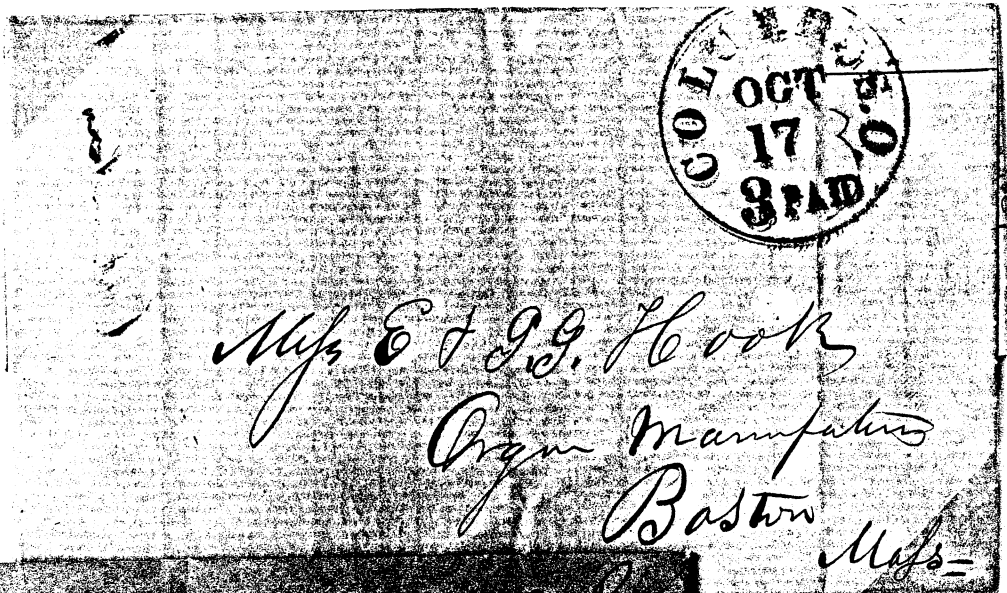 COLUMBUS.O.
OCT
17
3 PAID
Mess E & G.G. Hook
Organ Manufacturers
Boston
Mass=